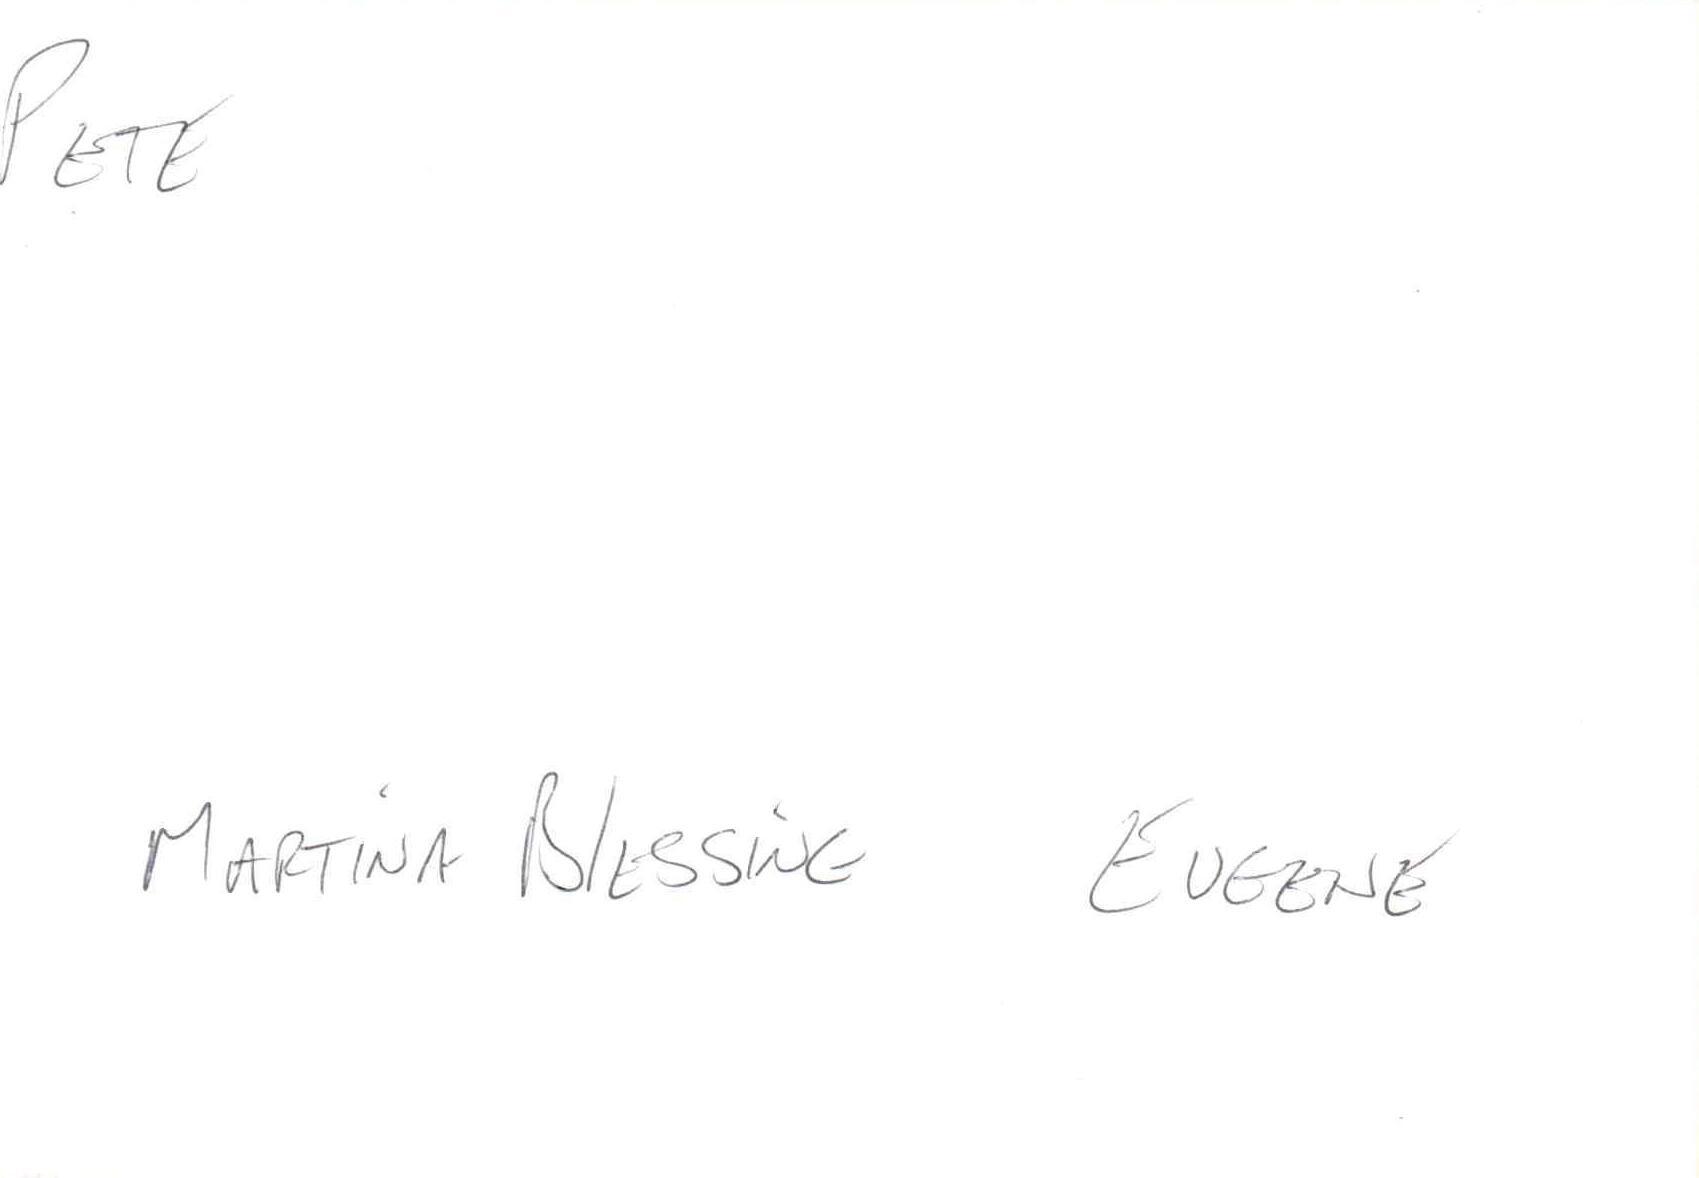 Pete
Martina Blessing Eugene